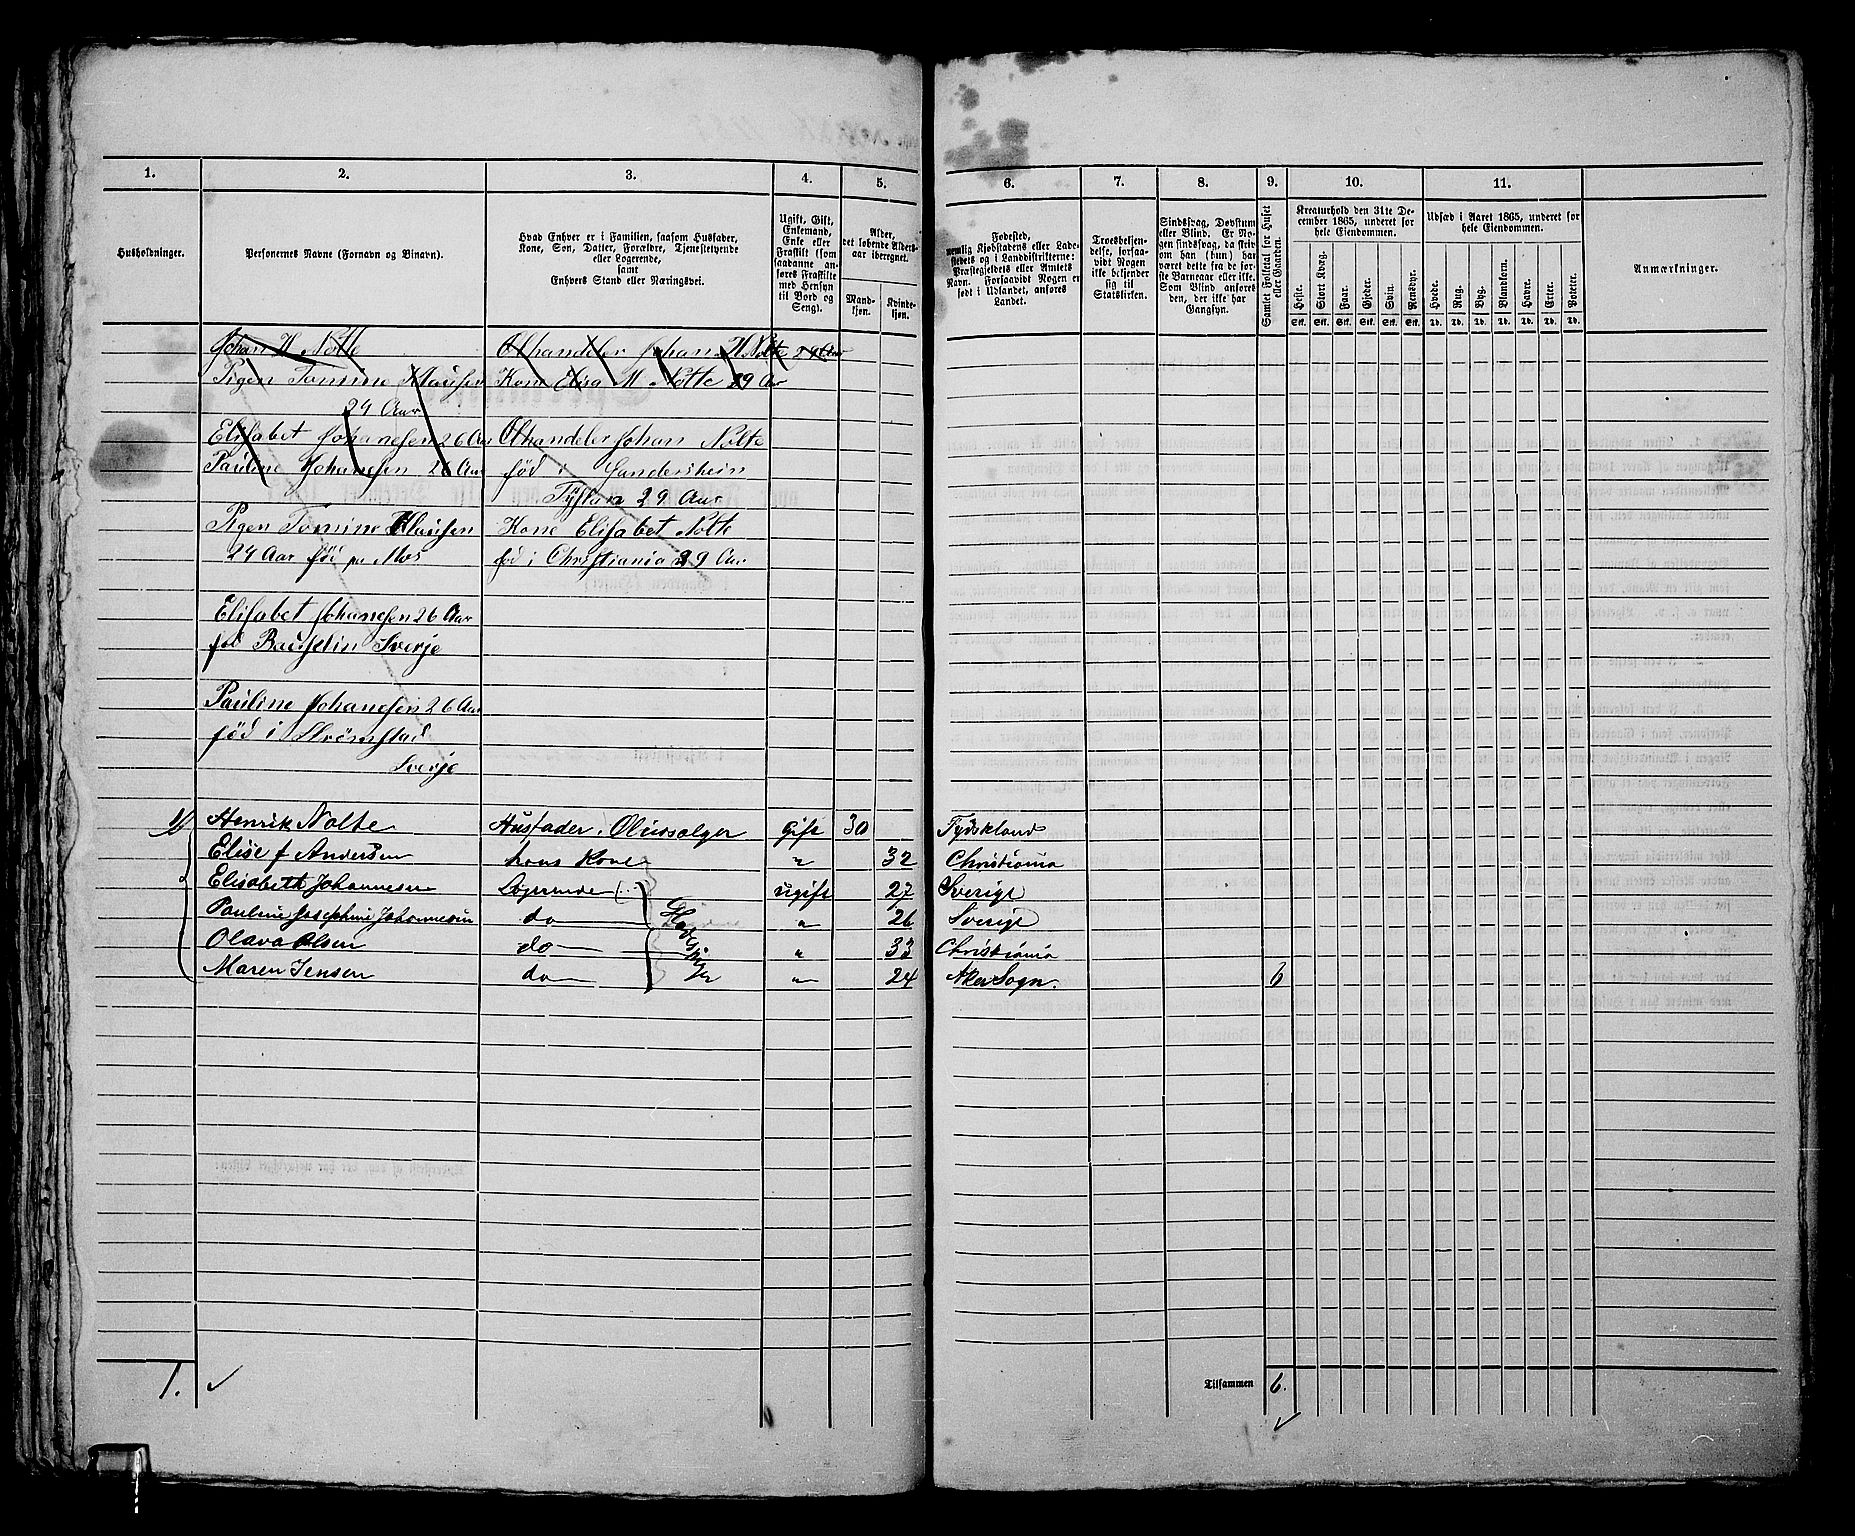 1. 2. 3. 4. 5. 6. 7. 8. 9. 10. 11.
Husholdninger.
Personernes Navne (Fornavn og Binavn).
Hvad Enhver er i Familien, saasom Husfader,
Kone, Søn, Datter, Forældre, Tjenestetyende
eller Logerende,
samt
Enhvers Stand eller Næringsvei.
Ugift, Gift,
Enkemand,
Enke eller
Fraskilt (som
saadanne an-
føres Fraskilte
med Hensyn
til Bord og
Seng).
Alder,
det løbende Alders-
aar iberegnet.
Mand-
kjøn.
Kvinde-
kjøn.
Fødested,
nemlig Kjøbstadens eller Lade-
stedets og i Landdistrikterne:
Præstegjeldets eller Amtets
Navn. Forsaavidt Nogen er
født i Udlandet, anføres
Landet.
Troesbekjen-
delse, forsaa-
vidt Nogen
ikke bekjender
sig til
Statskirken.
Sindssvag, Døvstum
eller Blind. Er No-
gen sindssvag, da skriv
om han (hun) har
været dette fra de før-
ste Barneaar eller ikke.
Som Blind anføres
den, der ikke har
Gangsyn.
Samlet Folketal for Huset
eller Gaarden.
Kreaturhold den 31te De-
cember 1865, underet for
hele Eiendommen.
Heste. Stort Kvæg. Faar. Gjeder. Svin. Rensdyr.
Stk. Stk. Stk. Stk. Stk. Stk.
Udsæd i Aaret 1865, underet for
hele Eiendommen.
Hvede. Rug. Byg. Blandkorn. Havre. Erter. Poteter.
Td. Td. Td. Td. Td. Td. Td.
Anmærkninger.
Johan H Nolte Ølhandeler Johan H Nolte 29 Aar
Pigen Tomine Klausen Kone Elisa M Nolte 29 Aar
24 Aar
Elisabet Johanesen 26 Aar Ølhandeler Johan Nolte
Pauline Johanesen 26 Aar föd i Gandershein
Tÿskan 29 Aar
Pigen Tomine Klausen Kone Elisabet Nolte
24 Aar föd pa Mos föd i Christiania 29 Aar
Elisabet Johanesen 26 Aar
föd Sverje
Pauline Johanesen 26 Aar
föd i Strömstad
Sverje
1) Henrik Nolte Husfader, Øludsælger Gift 30 Tydskland
Elise f Andersen hans Kone " 32 Christiania
Elisabeth Johannesen Logerende ugift 27 Sverige
Pauline Josephine Johannesen do " 26 Sverige
Olava Olsen do " 33 Christiania
Maren Jensen do " 24 Aker Sogn. 6
1. Tilsammen 6.